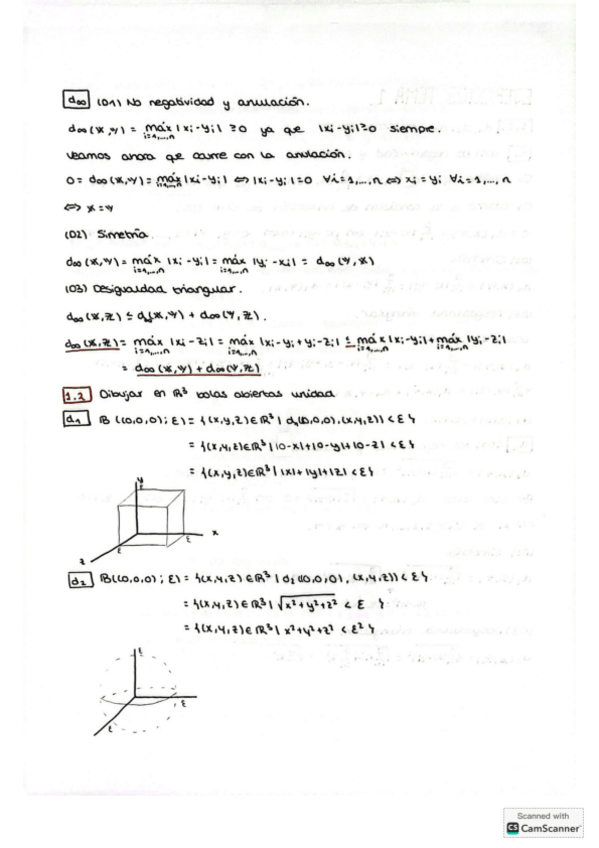 d∞ (D1) No negatividad y anulación.
d∞(x,y) = máx |xi-yi| ≥0 ya que |xi-yi|≥0 siempre.
i=1,...,n
Veamos ahora que ocurre con la anulación.
0 = d∞(x,y) = máx |xi-yi| ⇔ |xi-yi|=0 ∀i=1,...,n ⇔ xi=yi ∀i=1,...,n
i=1,...,n
⇔ x=y
(D2) Simetría.
d∞(x,y) = máx |xi-yi| = máx |yi-xi| = d∞(y,x)
i=1,...,n i=1,...,n
(D3) Desigualdad triangular.
d∞(x,z) ≤ d∞(x,y) + d∞(y,z).
d∞(x,z) = máx |xi-zi| = máx |xi-yi+yi-zi| ≤ máx |xi-yi| + máx |yi-zi|
i=1,...,n i=1,...,n i=1,...,n i=1,...,n
= d∞(x,y) + d∞(y,z)
1.2 Dibujar en ℝ³ bolas abiertas unidad
d1 B((0,0,0); ε) = {(x,y,z)∈ℝ³ | d1((0,0,0),(x,y,z)) < ε}
= {(x,y,z)∈ℝ³ | |0-x|+|0-y|+|0-z| < ε}
= {(x,y,z)∈ℝ³ | |x|+|y|+|z| < ε}
y
ε
x
z
ε
ε
d2 B((0,0,0); ε) = {(x,y,z)∈ℝ³ | d2((0,0,0),(x,y,z)) < ε}
= {(x,y,z)∈ℝ³ | √x²+y²+z² < ε }
= {(x,y,z)∈ℝ³ | x²+y²+z² < ε²}
ε
ε
ε
Scanned with
CS CamScanner